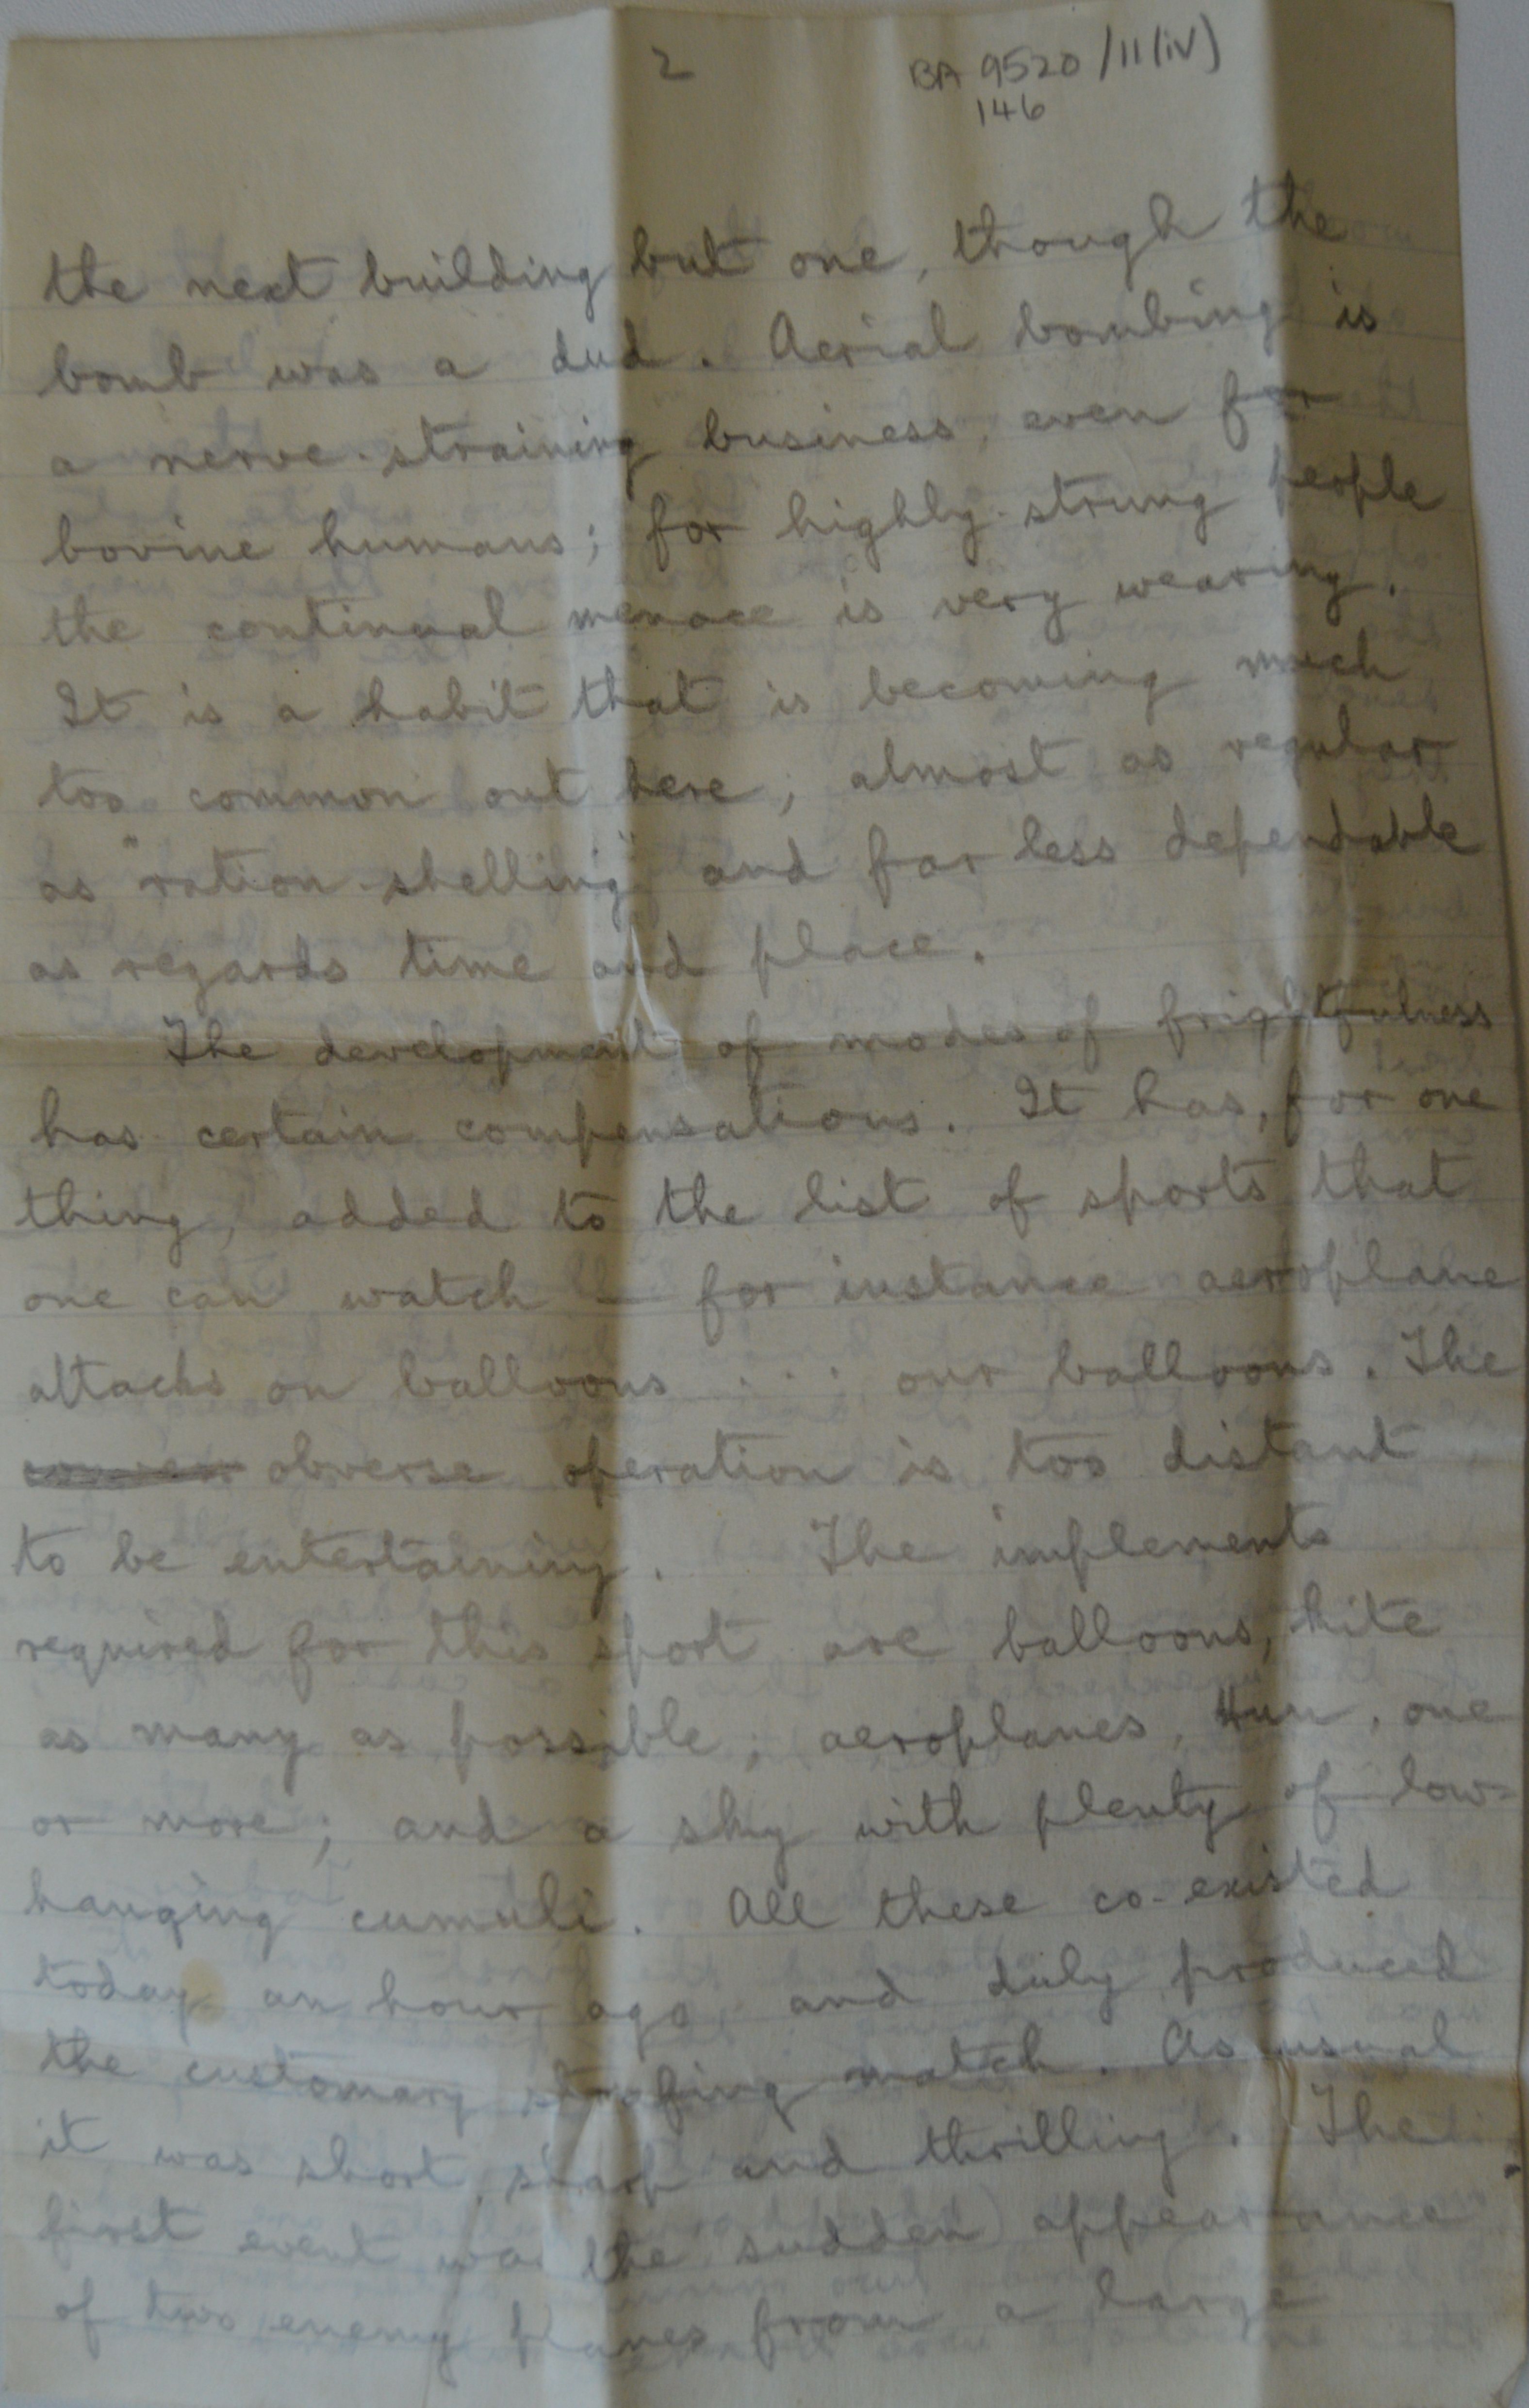 2
BA 9520/11(iv)
146
the next building but one, though the
bomb was a dud. Aerial bombing is
a nerve-straining business, even for
bovine humans; for highly-strung people
the continual menace is very wearing.
It is a habit that is becoming much
too common out here; almost as regular
as "ration-shelling" and far less dependable
as regards time and place.
The development of modes of frightfulness
has certain compensations. It has, for one
thing, added to the list of sports that
one can watch - for instance aeroplane
attacks on balloons ... our balloons. The
obverse operation is too distant
to be entertaining. The implements
required for this sport are balloons, kite
as many as possible; aeroplanes, Hun, one
or more; and a sky with plenty of low-
hanging cumuli. All these co-existed
today an hour ago and duly produced
the customary strafing match. As usual
it was short, sharp and thrilling. The
first event was the sudden appearance
of two enemy planes from a large